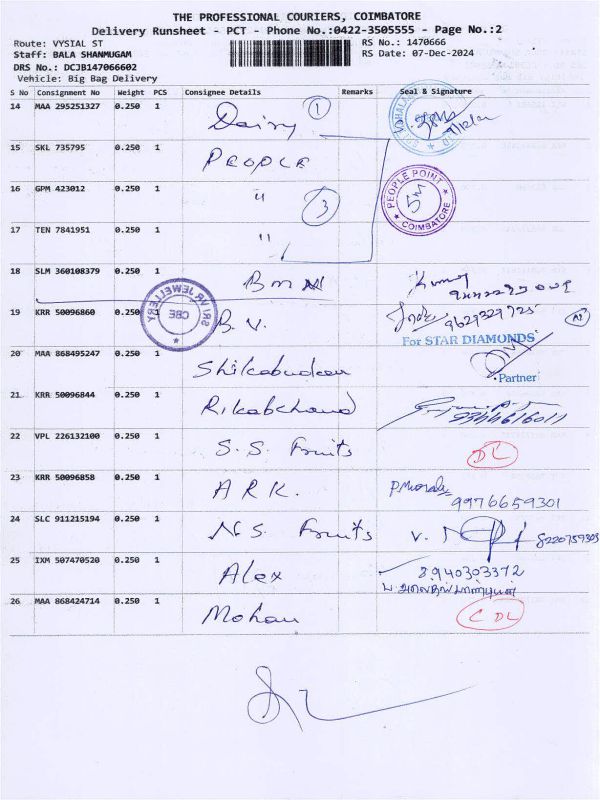 THE PROFESSIONAL COURIERS, COIMBATORE
Delivery Runsheet - PCT - Phone No.:0422-3505555 - Page No.:2
Route: VYSIAL ST
RS No.: 1470666
Staff: BALA SHANMUGAM
RS Date: 07-Dec-2024
DRS No.: DCJB147066602
Vehicle: Big Bag Delivery
S No Consignment No Weight PCS Consignee Details Remarks Seal & Signature
14 MAA 295251327 0.250 1 Dairy 1
15 SKL 735795 0.250 1 PEOPLE
PEOPLE POINT COIMBATORE
16 GPM 423012 0.250 1 " 3
17 TEN 7841951 0.250 1 "
18 SLM 360108379 0.250 1 B M N
SRI VR JEWELLERY CBE
19 KRR 50096860 0.250 1 B.V. 9629329725
For STAR DIAMONDS
Partner
20 MAA 868495247 0.250 1
21 KRR 50096844 0.250 1 Rikabchand 9344616011
22 VPL 226132100 0.250 1 S.S. Fruits DL
23 KRR 50096858 0.250 1 ARK. 9976659301
24 SLC 911215194 0.250 1 N.S. Fruits V. 8220759303
25 IXM 507470520 0.250 1 Alex 8940303372
26 MAA 868424714 0.250 1 Mohan CDL